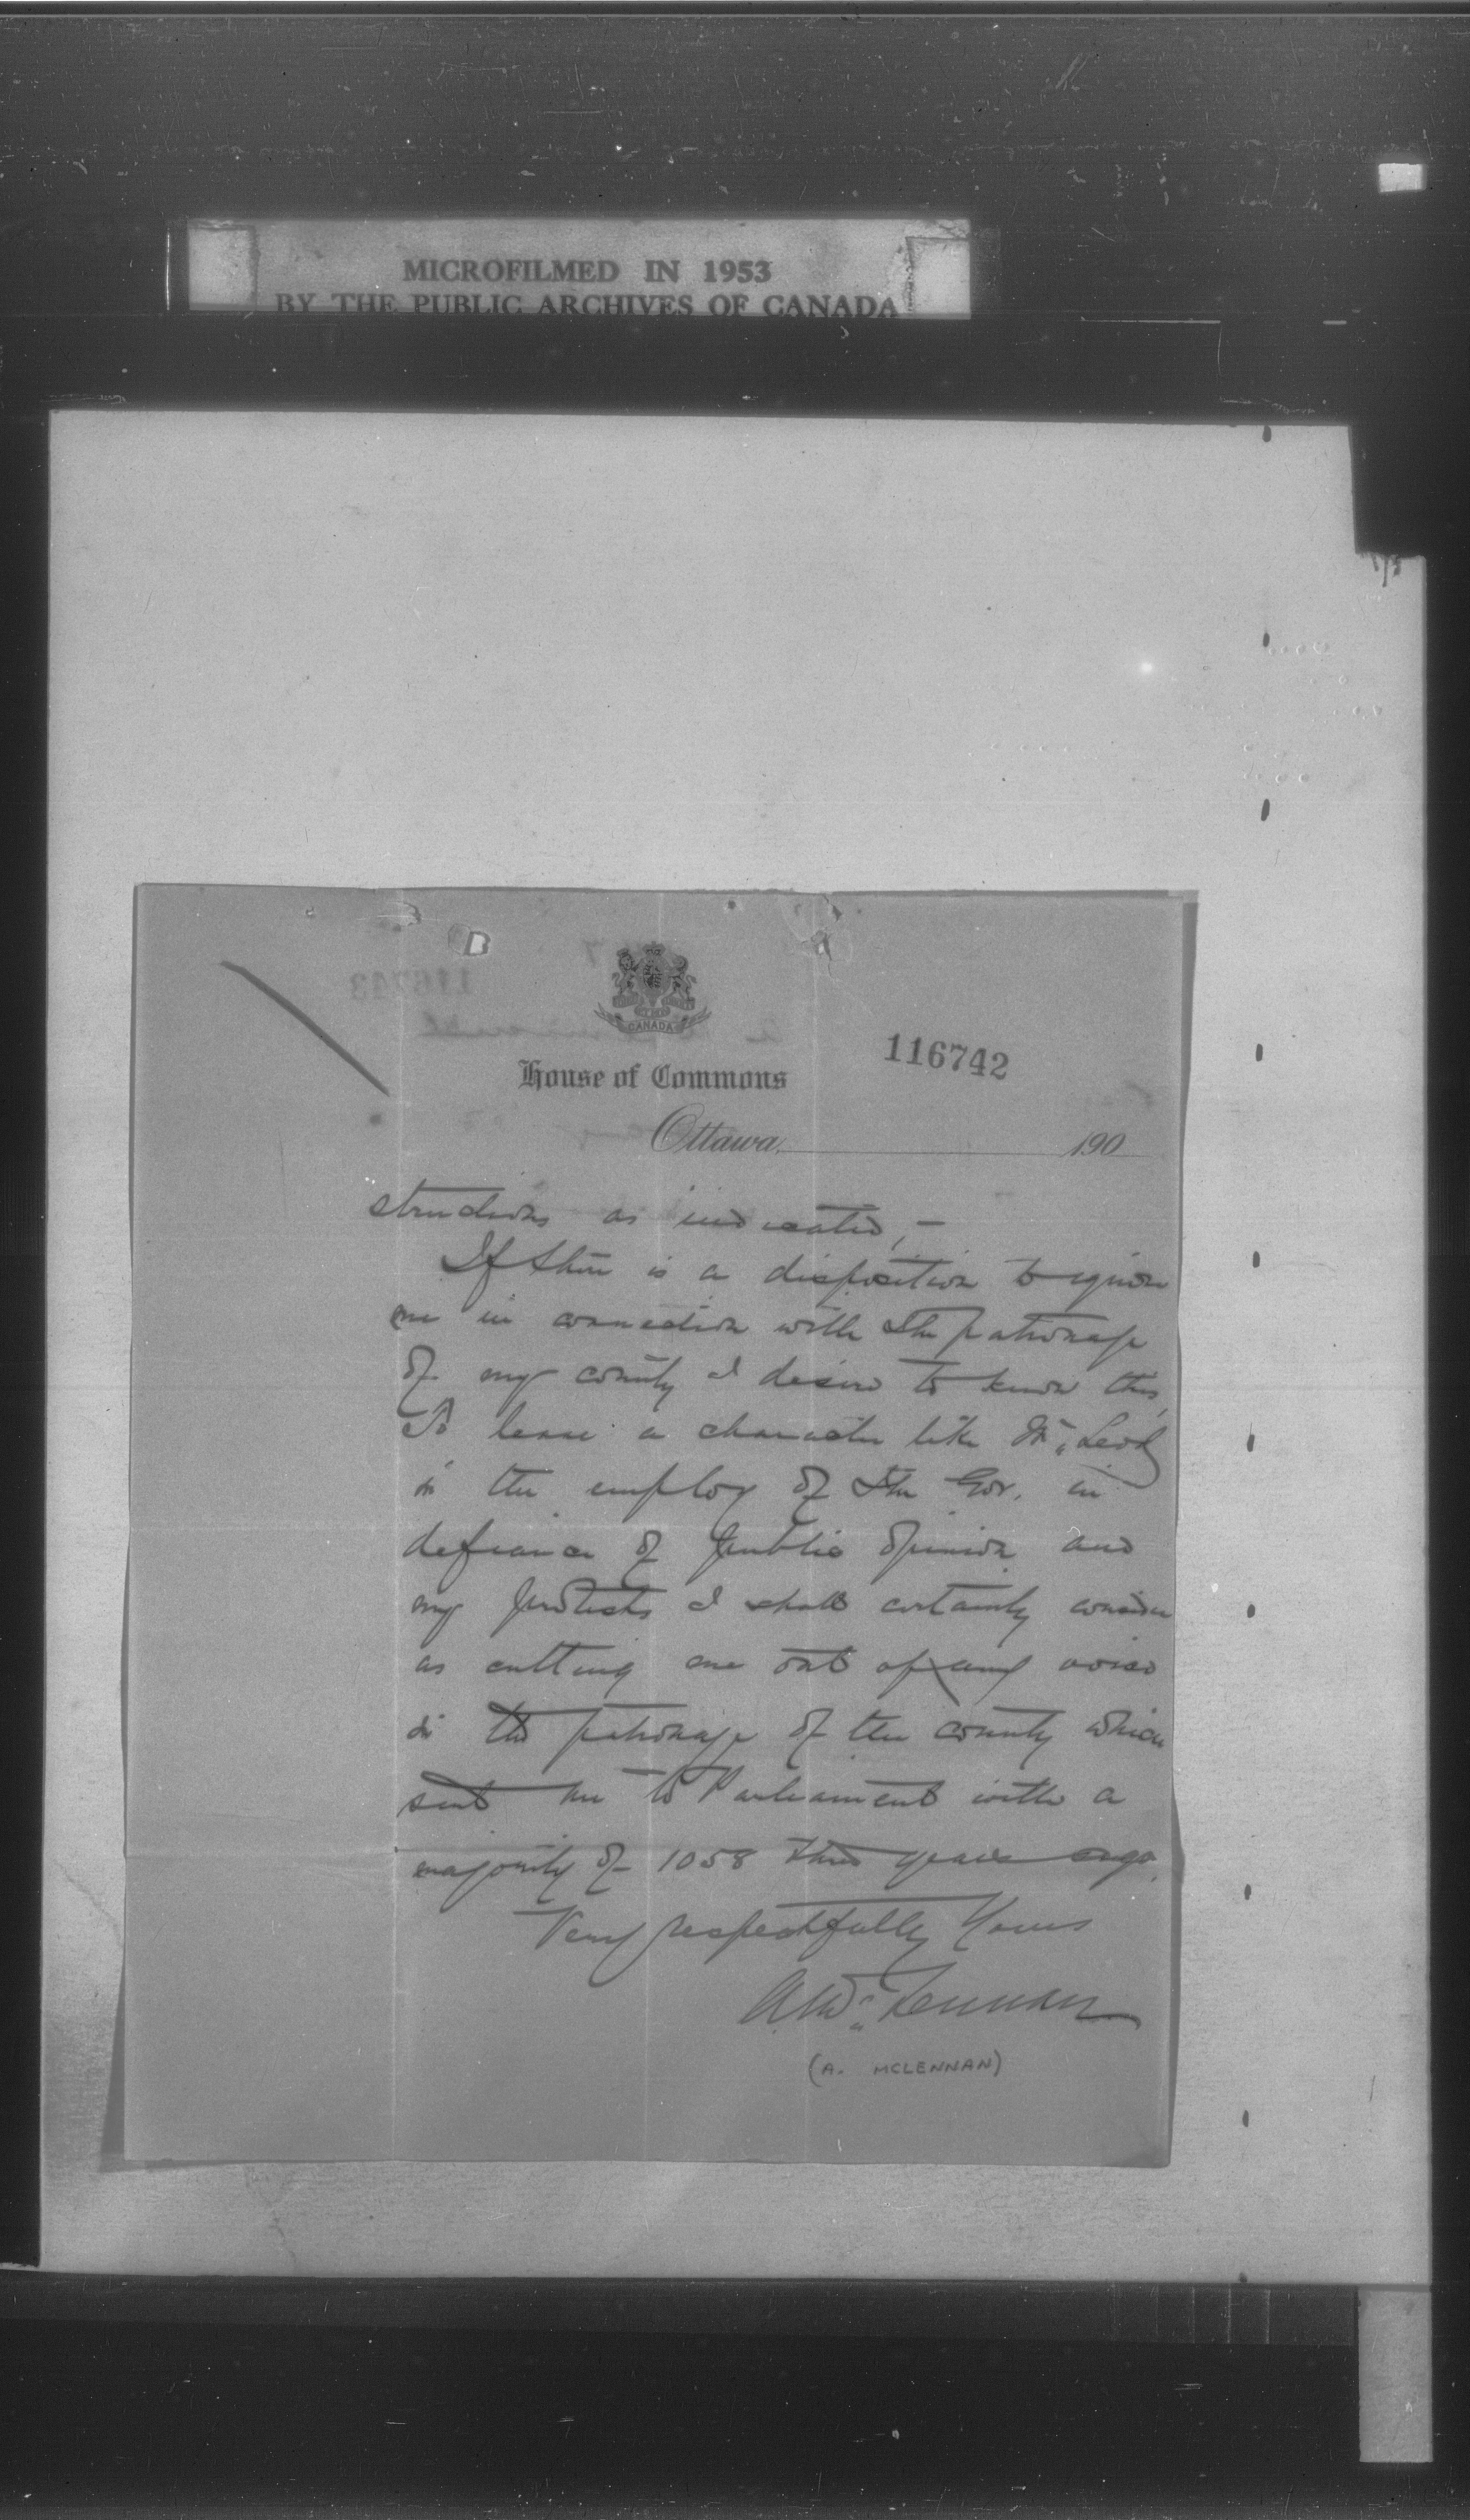 MICROFILMED IN 1953
BY THE PUBLIC ARCHIVES OF CANADA
CANADA
116742
House of Commons
Ottawa, 190
structions as indicated, —
If there is a disposition to ignore
me in connection with the patronage
of my county I desire to know this,
To leave a character like McLeod
in the employ of the Gov. in
defiance of public opinion and
my protests I shall certainly consider
as cutting me out of any voice
in the patronage of the county which
sent me to Parliament with a
majority of 1058 three years ago.
Very respectfully Yours
A McLennan
(A. MCLENNAN)